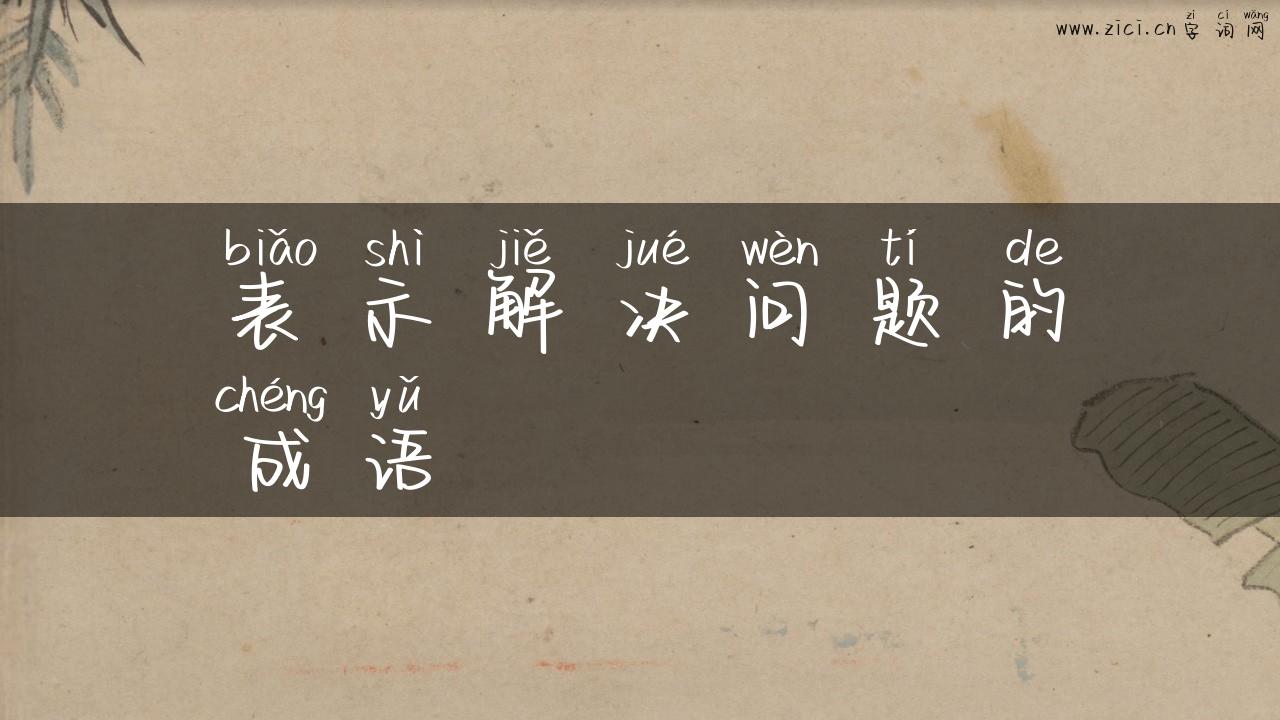 zì cí wǎng
www.zici.cn 字词网
biǎo shì jiě jué wèn tí de
表示解决问题的
chéng yǔ
成语